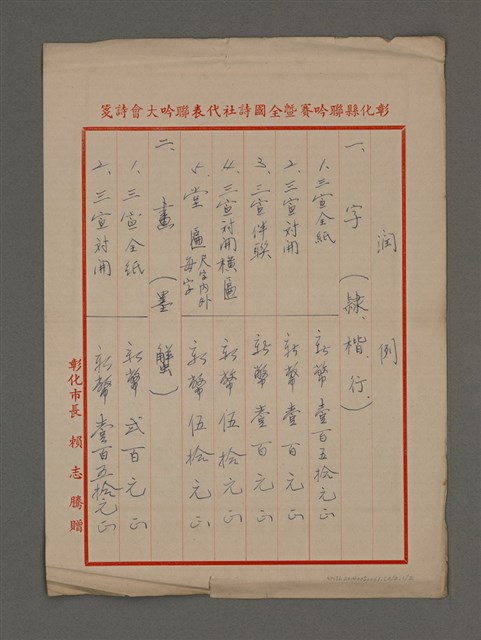 彰化縣聯吟賽暨全國詩社代表聯吟大會詩箋
润例
一、字（隸、楷、行）
1、三宣全紙 新幣壹百五拾元正
2、三宣对開 新幣壹百元正
3、三宣伴联 新幣壹百元正
4、三宣对開橫匾 新幣伍拾元正
5、堂匾 尺字内外每字 新幣伍拾元正
二、畫（墨蟹）
1、三宣全紙 新幣弍百元正
2、三宣对開 新幣壹百五拾元正
彰化市長 賴志騰贈